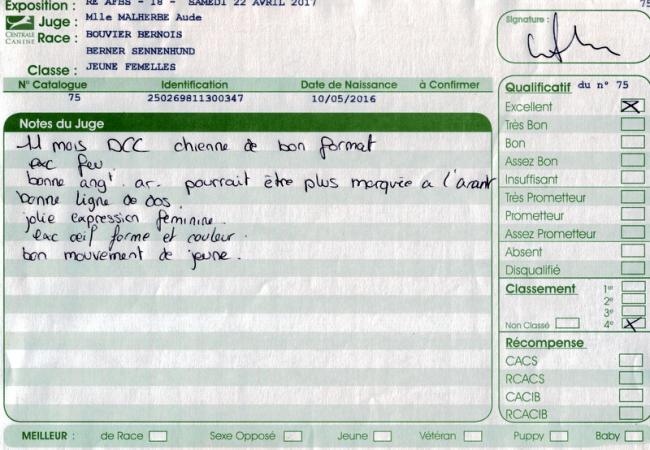 Exposition : RE AFBS - 18 - SAMEDI 22 AVRIL 2017
75
Juge : Mlle MALHERBE Aude
CENTRALE CANINE
Race : BOUVIER BERNOIS
BERNER SENNENHUND
Classe : JEUNE FEMELLES
Signature :
N° Catalogue Identification Date de Naissance à Confirmer
75 250269811300347 10/05/2016
Notes du Juge
11 mois DCC chienne de bon format
exc feu.
bonne angt. ar. pourrait être plus marquée a l'avant
bonne ligne de dos.
jolie expression féminine.
exc œil forme et couleur.
bon mouvement de jeune.
Qualificatif du n° 75
Excellent
Très Bon
Bon
Assez Bon
Insuffisant
Très Prometteur
Prometteur
Assez Prometteur
Absent
Disqualifié
Classement 1er
2e
3e
Non Classé 4e
Récompense
CACS
RCACS
CACIB
RCACIB
MEILLEUR : de Race Sexe Opposé Jeune Vétéran Puppy Baby